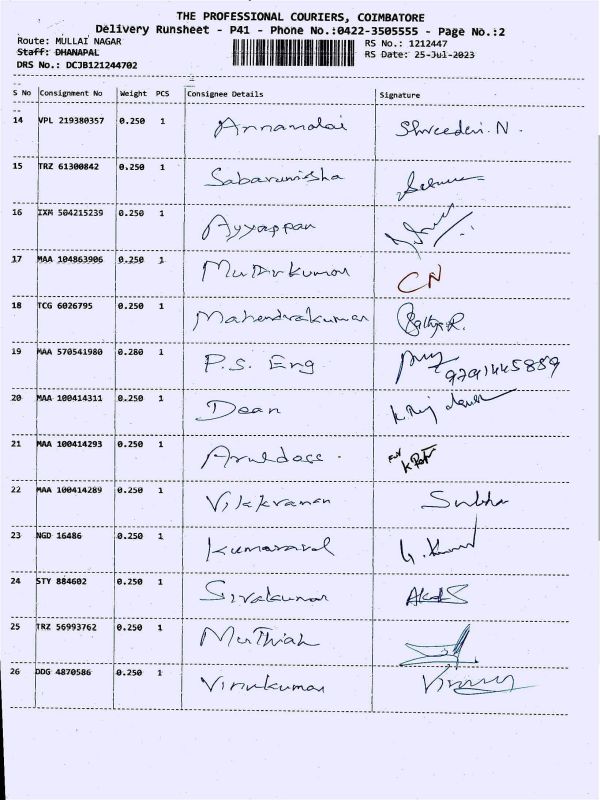 THE PROFESSIONAL COURIERS, COIMBATORE
Delivery Runsheet - P41 - Phone No.:0422-3505555 - Page No.:2
Route: MULLAI NAGAR RS No.: 1212447
Staff: DHANAPAL RS Date: 25-Jul-2023
DRS No.: DCJB121244702
S No Consignment No Weight PCS Consignee Details Signature
14 VPL 219380357 0.250 1 Annamalai Shreedevi. N.
15 TRZ 61300842 0.250 1 Sabarunisha
16 IXM 504215239 0.250 1 Ayyappan
17 MAA 104863906 0.250 1 Muthukumar CN
18 TCG 6026795 0.250 1 Mahendrakumar
19 MAA 570541980 0.280 1 P.S. Eng 9791445889
20 MAA 100414311 0.250 1 Dean
21 MAA 100414293 0.250 1 Aruldoss. for
22 MAA 100414289 0.250 1 Vikkraman Subha
23 NGD 16486 0.250 1 Kumaravel
24 STY 884602 0.250 1 Sivakumar
25 TRZ 56993762 0.250 1 Muthiah
26 DDG 4870586 0.250 1 Vinukumar